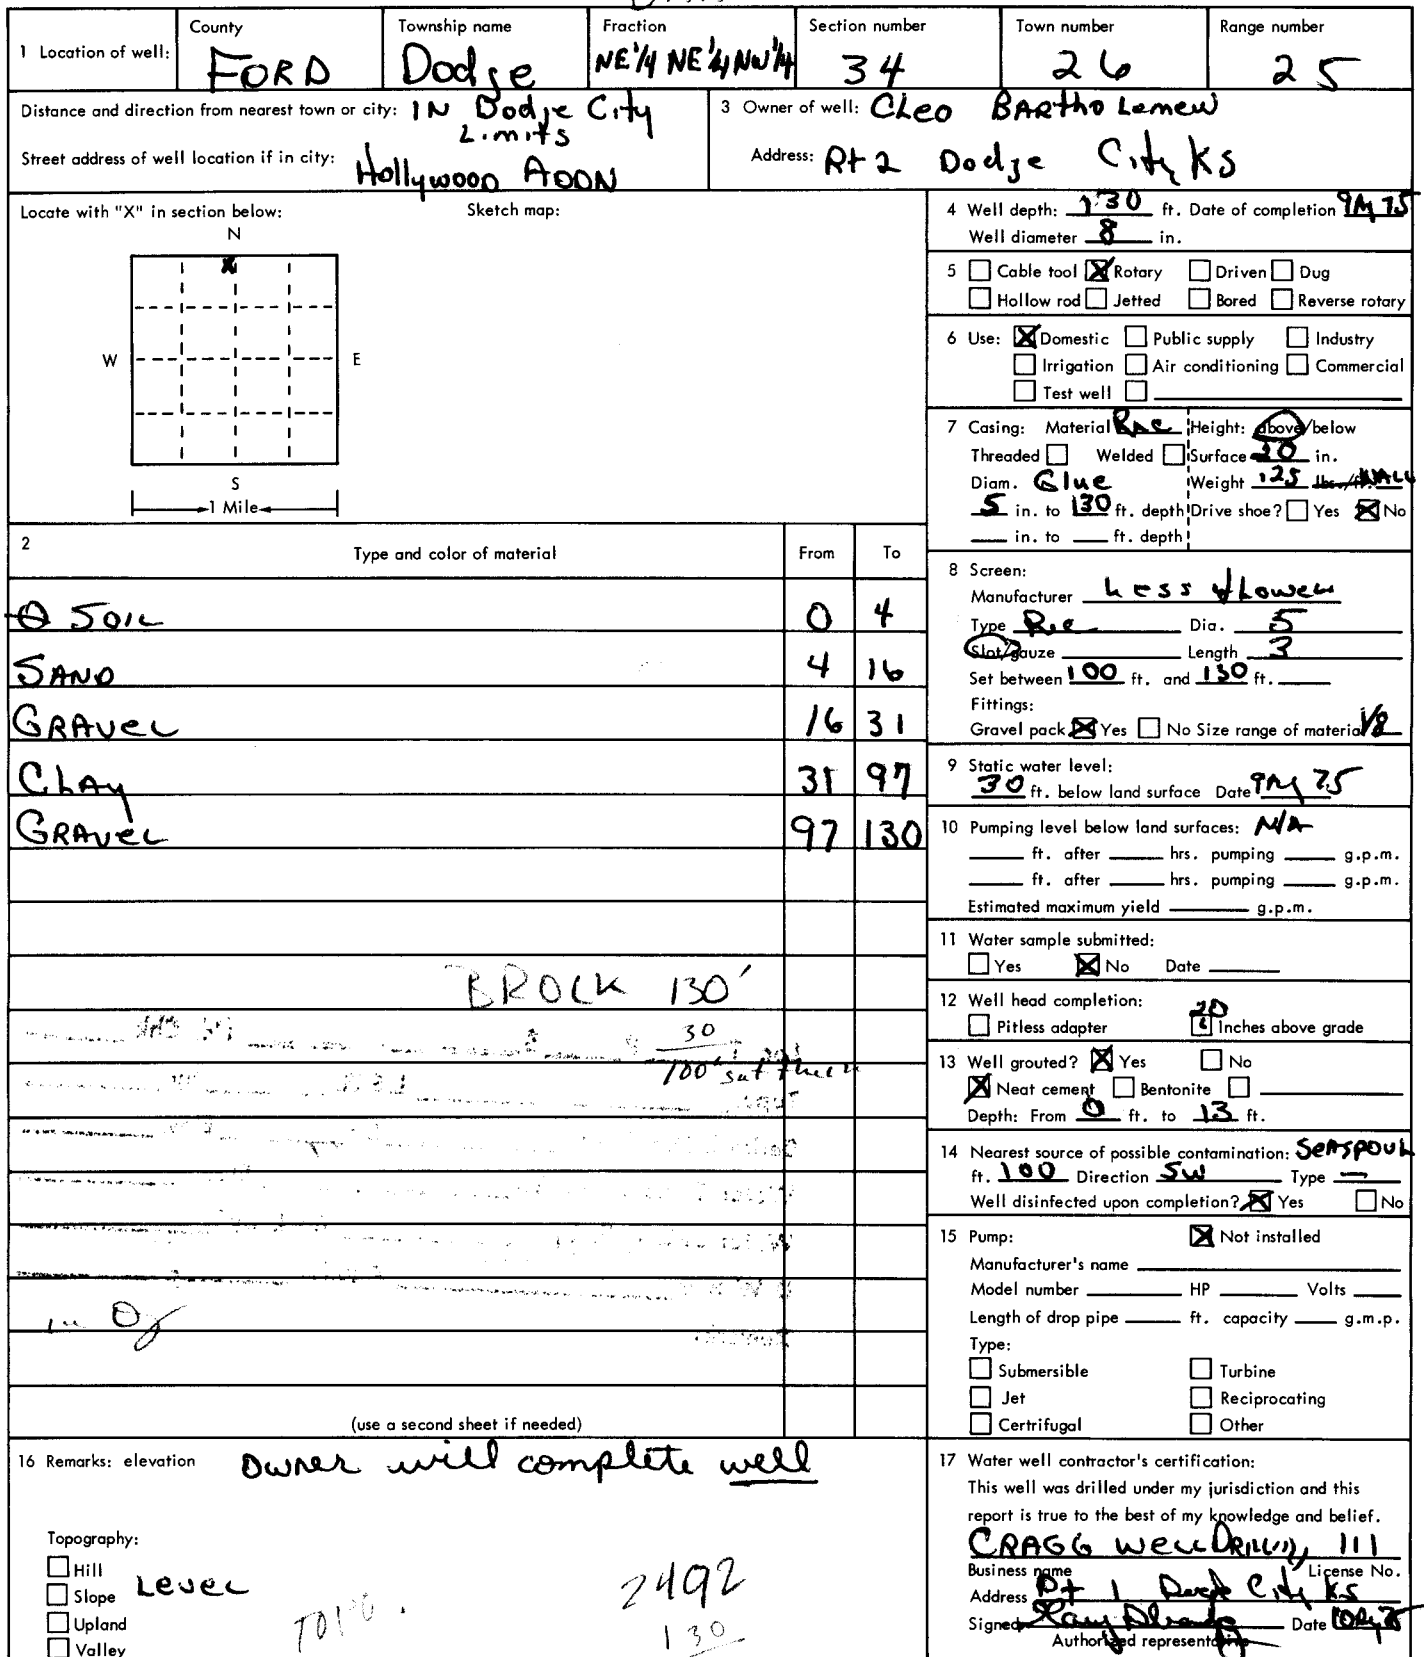 1 Location of well: County FORD Township name Dodge Fraction NE 1/4 NE 1/4 NW 1/4 Section number 34 Town number 26 Range number 25
Distance and direction from nearest town or city: IN Dodge City Limits
Street address of well location if in city: Hollywood ADDN
3 Owner of well: CLeo BARthoLomew
Address: Rt 2 Dodge City KS
Locate with "X" in section below: Sketch map:
N
X
W E
S
1 Mile
2 Type and color of material From To
SOIL 0 4
SAND 4 16
GRAVEL 16 31
CLAY 31 97
GRAVEL 97 130
BROCK 130'
30
100' sat thick
(use a second sheet if needed)
4 Well depth: 130 ft. Date of completion 9 My 75
Well diameter 8 in.
5 Cable tool X Rotary Driven Dug
Hollow rod Jetted Bored Reverse rotary
6 Use: X Domestic Public supply Industry
Irrigation Air conditioning Commercial
Test well
7 Casing: Material Height: above/below
Threaded Welded Surface 20 in.
Diam. Glue Weight .125 lbs./ft. WALL
5 in. to 130 ft. depth Drive shoe? Yes X No
in. to ft. depth
8 Screen:
Manufacturer
Type Dia. 5
Slot/gauze Length 3
Set between 100 ft. and 130 ft.
Fittings:
Gravel pack X Yes No Size range of material 1/8
9 Static water level:
30 ft. below land surface Date 9 My 75
10 Pumping level below land surfaces: N/A
ft. after hrs. pumping g.p.m.
ft. after hrs. pumping g.p.m.
Estimated maximum yield g.p.m.
11 Water sample submitted:
Yes X No Date
12 Well head completion: 20
Pitless adapter Inches above grade
13 Well grouted? X Yes No
X Neat cement Bentonite
Depth: From 0 ft. to 13 ft.
14 Nearest source of possible contamination: SeASPOUL
ft. 100 Direction SW Type —
Well disinfected upon completion? X Yes No
15 Pump: X Not installed
Manufacturer's name
Model number HP Volts
Length of drop pipe ft. capacity g.m.p.
Type:
Submersible Turbine
Jet Reciprocating
Certrifugal Other
16 Remarks: elevation Owner will complete well
Topography:
Hill
Slope Level
Upland
Valley
TOPO.
2492
130
17 Water well contractor's certification:
This well was drilled under my jurisdiction and this
report is true to the best of my knowledge and belief.
CRAGG Well Drilling 111
Business name License No.
Address Rt 1 Dodge City KS
Signed Date
Authorized representative